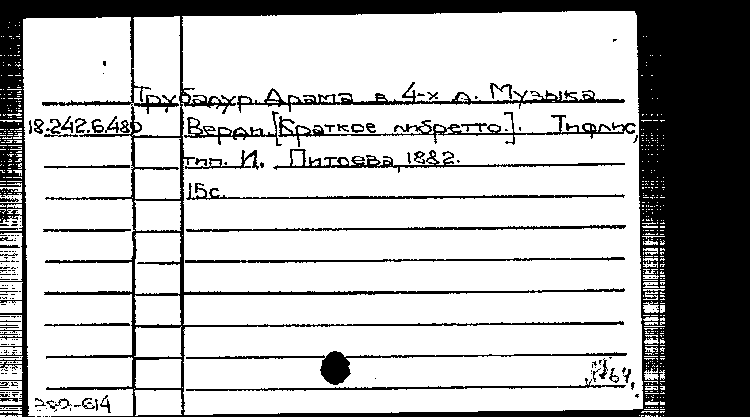 Трубадур. Драма в 4-х д. Музыка
18.242.6.480 Верди. [Краткое либретто]. Тифлис,
тип. И. Питоева, 1882.
15 с.